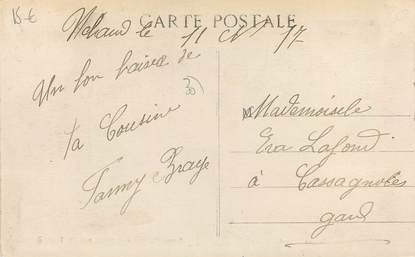 15 €
CARTE POSTALE
le 11 17
Un bon baiser de
ta Cousine
Fanny
Mademoiselle
Eva Lafond
à Cassagnoles
gard